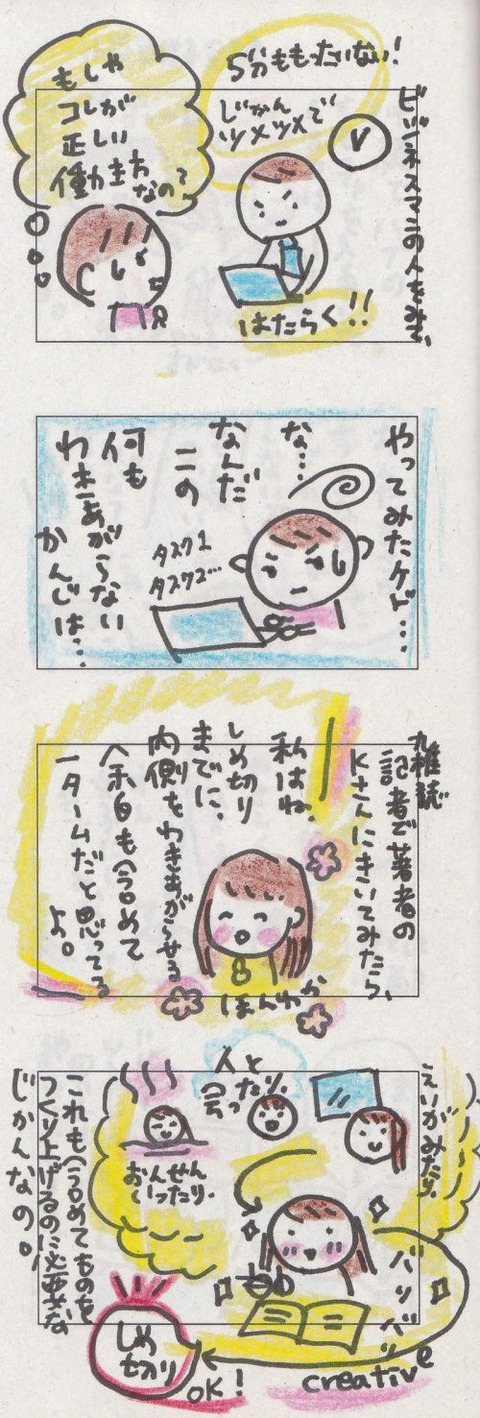 ビジネスマンの人をみて、
5分ももったいない!
じかん
ツメツメで
はたらく!!
もしや
コレが
正しい
働き方
なの?
やってみたケド…
な…
なんだ
この
何も
わきあがらない
かんじは…
タスク1
タスク2…
雑誌
記者で著者の
Kさんにきいてみたら、
私はね、
しめ切り
までに、
内側もわきあがらせる
余白も含めて
一タームだと思ってる
よ。
ほんわか
えいがみたり、
人と
会ったり、
おんせん
いったり、
バリバリ
これも含めてものを
つくり上げるのに必要な
じかんなの。
creative
しめ
切り
OK!